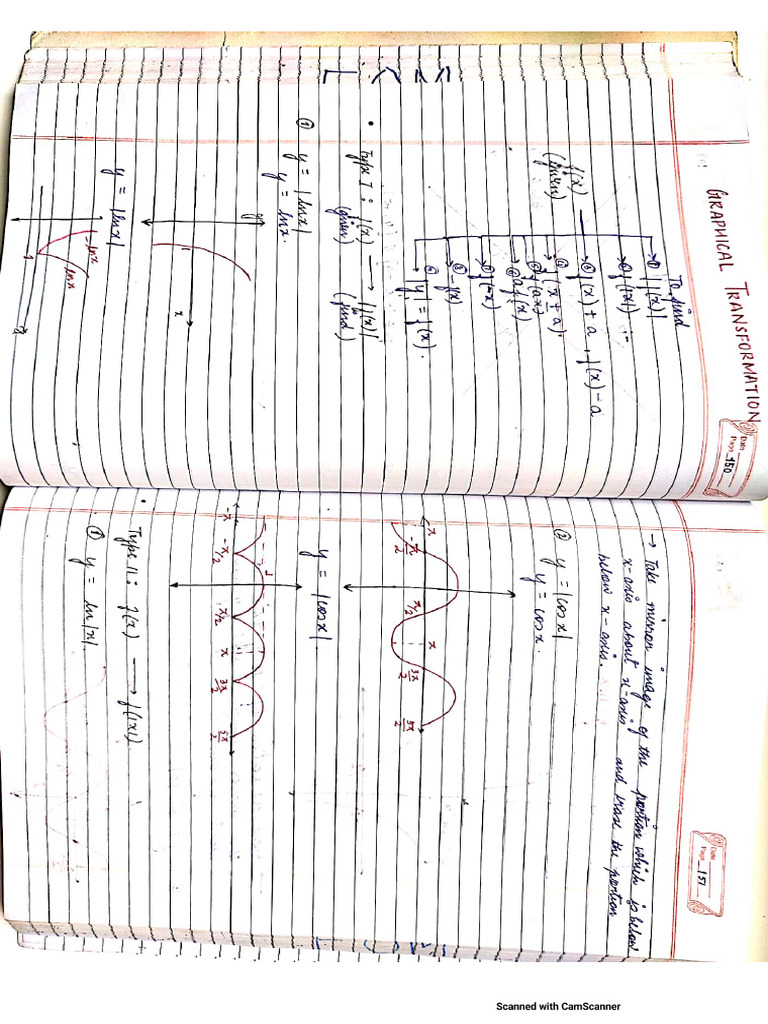 GRAPHICAL TRANSFORMATION
Date
Page 150
To find
f(x)
(given)
① |f(x)|
② f(|x|) :-
③ f(x) ± a , f(x) - a
④ f(x ± a).
⑤ f(ax)
⑥ a f(x)
⑦ f(-x)
⑧ -f(x)
⑨ |y| = f(x).
• Type I : f(x) → |f(x)|
(given) (find)
① y = |lnx|
y = lnx.
y
1
x
y = |lnx|
-lnx
lnx
1
Date
Page 151
→ Take mirror image of the portion which is below
x-axis about x-axis and erase the portion
below x-axis.
② y = |cosx|
y = cosx.
-π/2 π/2 π 3π/2 5π/2
y = |cosx|
1
-π -π/2 π/2 π 3π/2 5π/2
• Type II : f(x) → f(|x|)
① y = ln|x|
Scanned with CamScanner